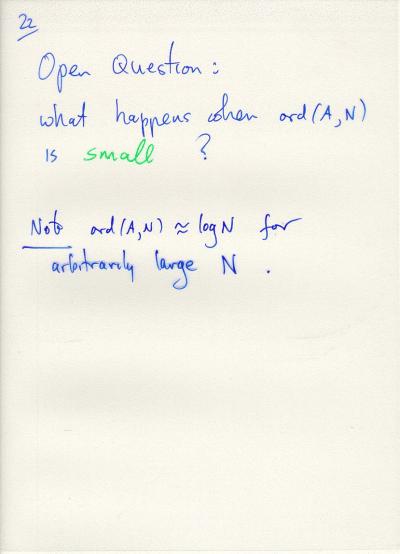 22
Open Question:
what happens when ord(A,N)
is small ?
Note ord(A,N) ≈ log N for
arbitrarily large N.